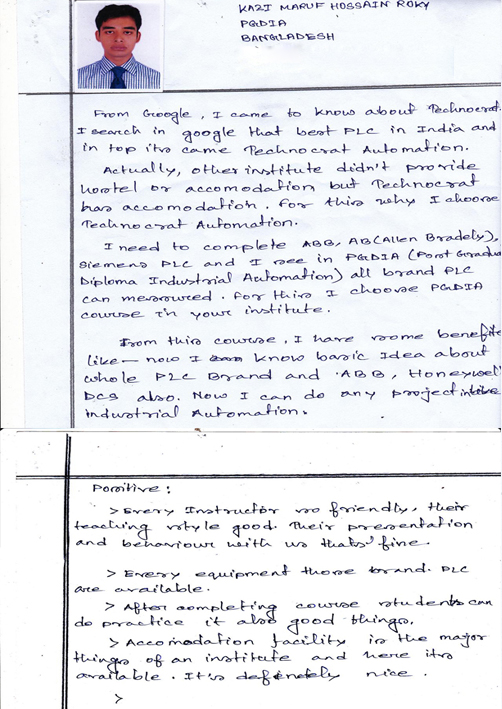 KAZI MARUF HOSSAIN ROKY
PGDIA
BANGLADESH
From Google, I came to know about Technocrat.
I search in google that best PLC in India and
in top its came Technocrat Automation.
Actually, other institute didn't provide
hostel or accomodation but Technocrat
has accomodation. For this why I choose
Technocrat Automation.
I need to complete ABB, AB(Allen Bradely),
Siemens PLC and I see in PGDIA (Post Gradua
Diploma Industrial Automation) all brand PLC
can measured. For this I choose PGDIA
course in your institute.
From this course, I have some benefite
like — now I know basic Idea about
whole PLC Brand and ABB, Honeywell
DCS also. Now I can do any project
industrial Automation.
Positive :
> Every Instructor so friendly, their
teaching style good. Their presentation
and behaviour with us thats' fine.
> Every equipment those brand. PLC
are available.
> After completing course students can
do practice it also good things.
> Accomodation facility is the major
things of an institute and here its
available. It's definetely nice.
>